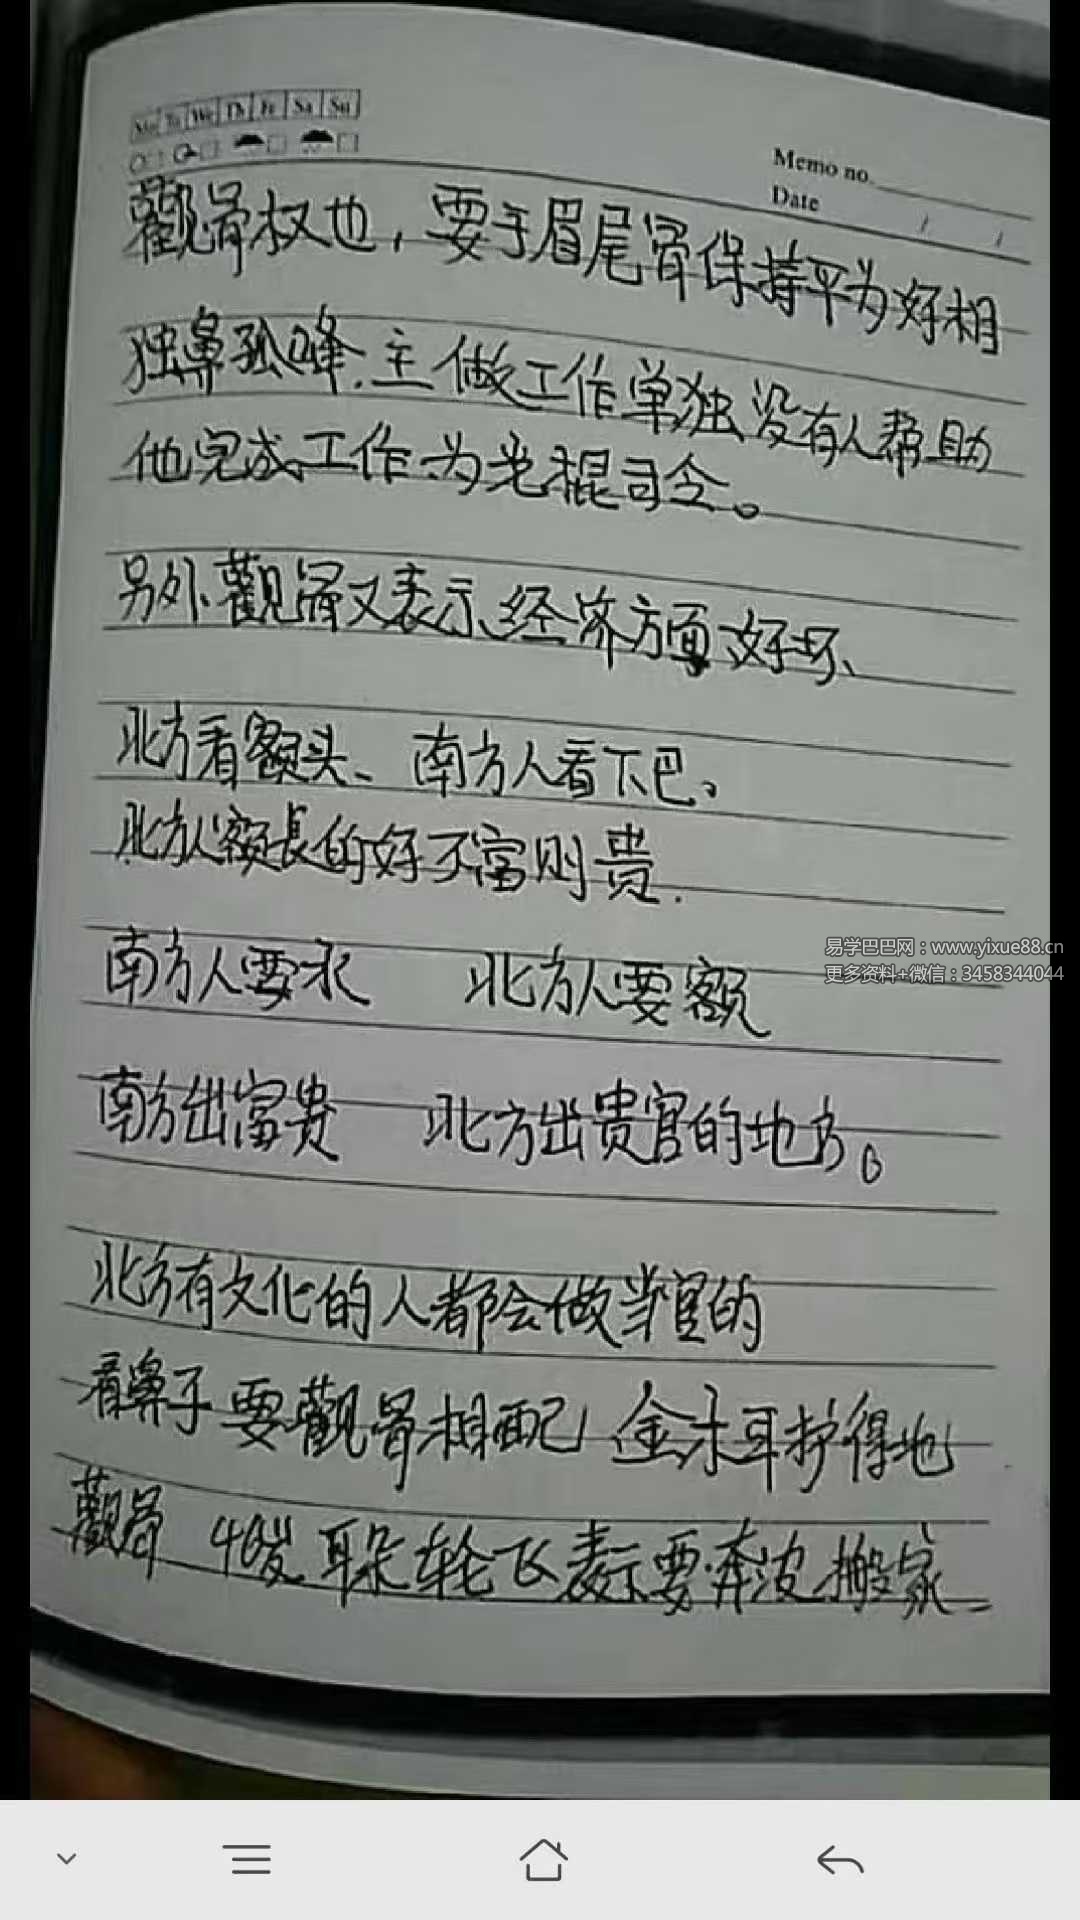 Mo Tu We Th Fr Sa Su
Memo no.
Date / /
觀骨权也，要于眉尾骨保持平为好相
独鼻孤峰.主做工作单独没有人帮助
他完成工作.为光棍司令。
另外觀骨又表示经济方面好坏、
北方看额头、南方人看下巴。
北方人额長的好不富则贵.
南方人要水 北方人要额
南方出富贵 北方出贵官的地方。
北方有文化的人都会做当官的
看鼻子要觀骨相配 金木耳护得地
觀骨 46岁耳朵轮飞表示要奔波搬家
易学巴巴网：www.yixue88.cn
更多资料+微信：3458344044